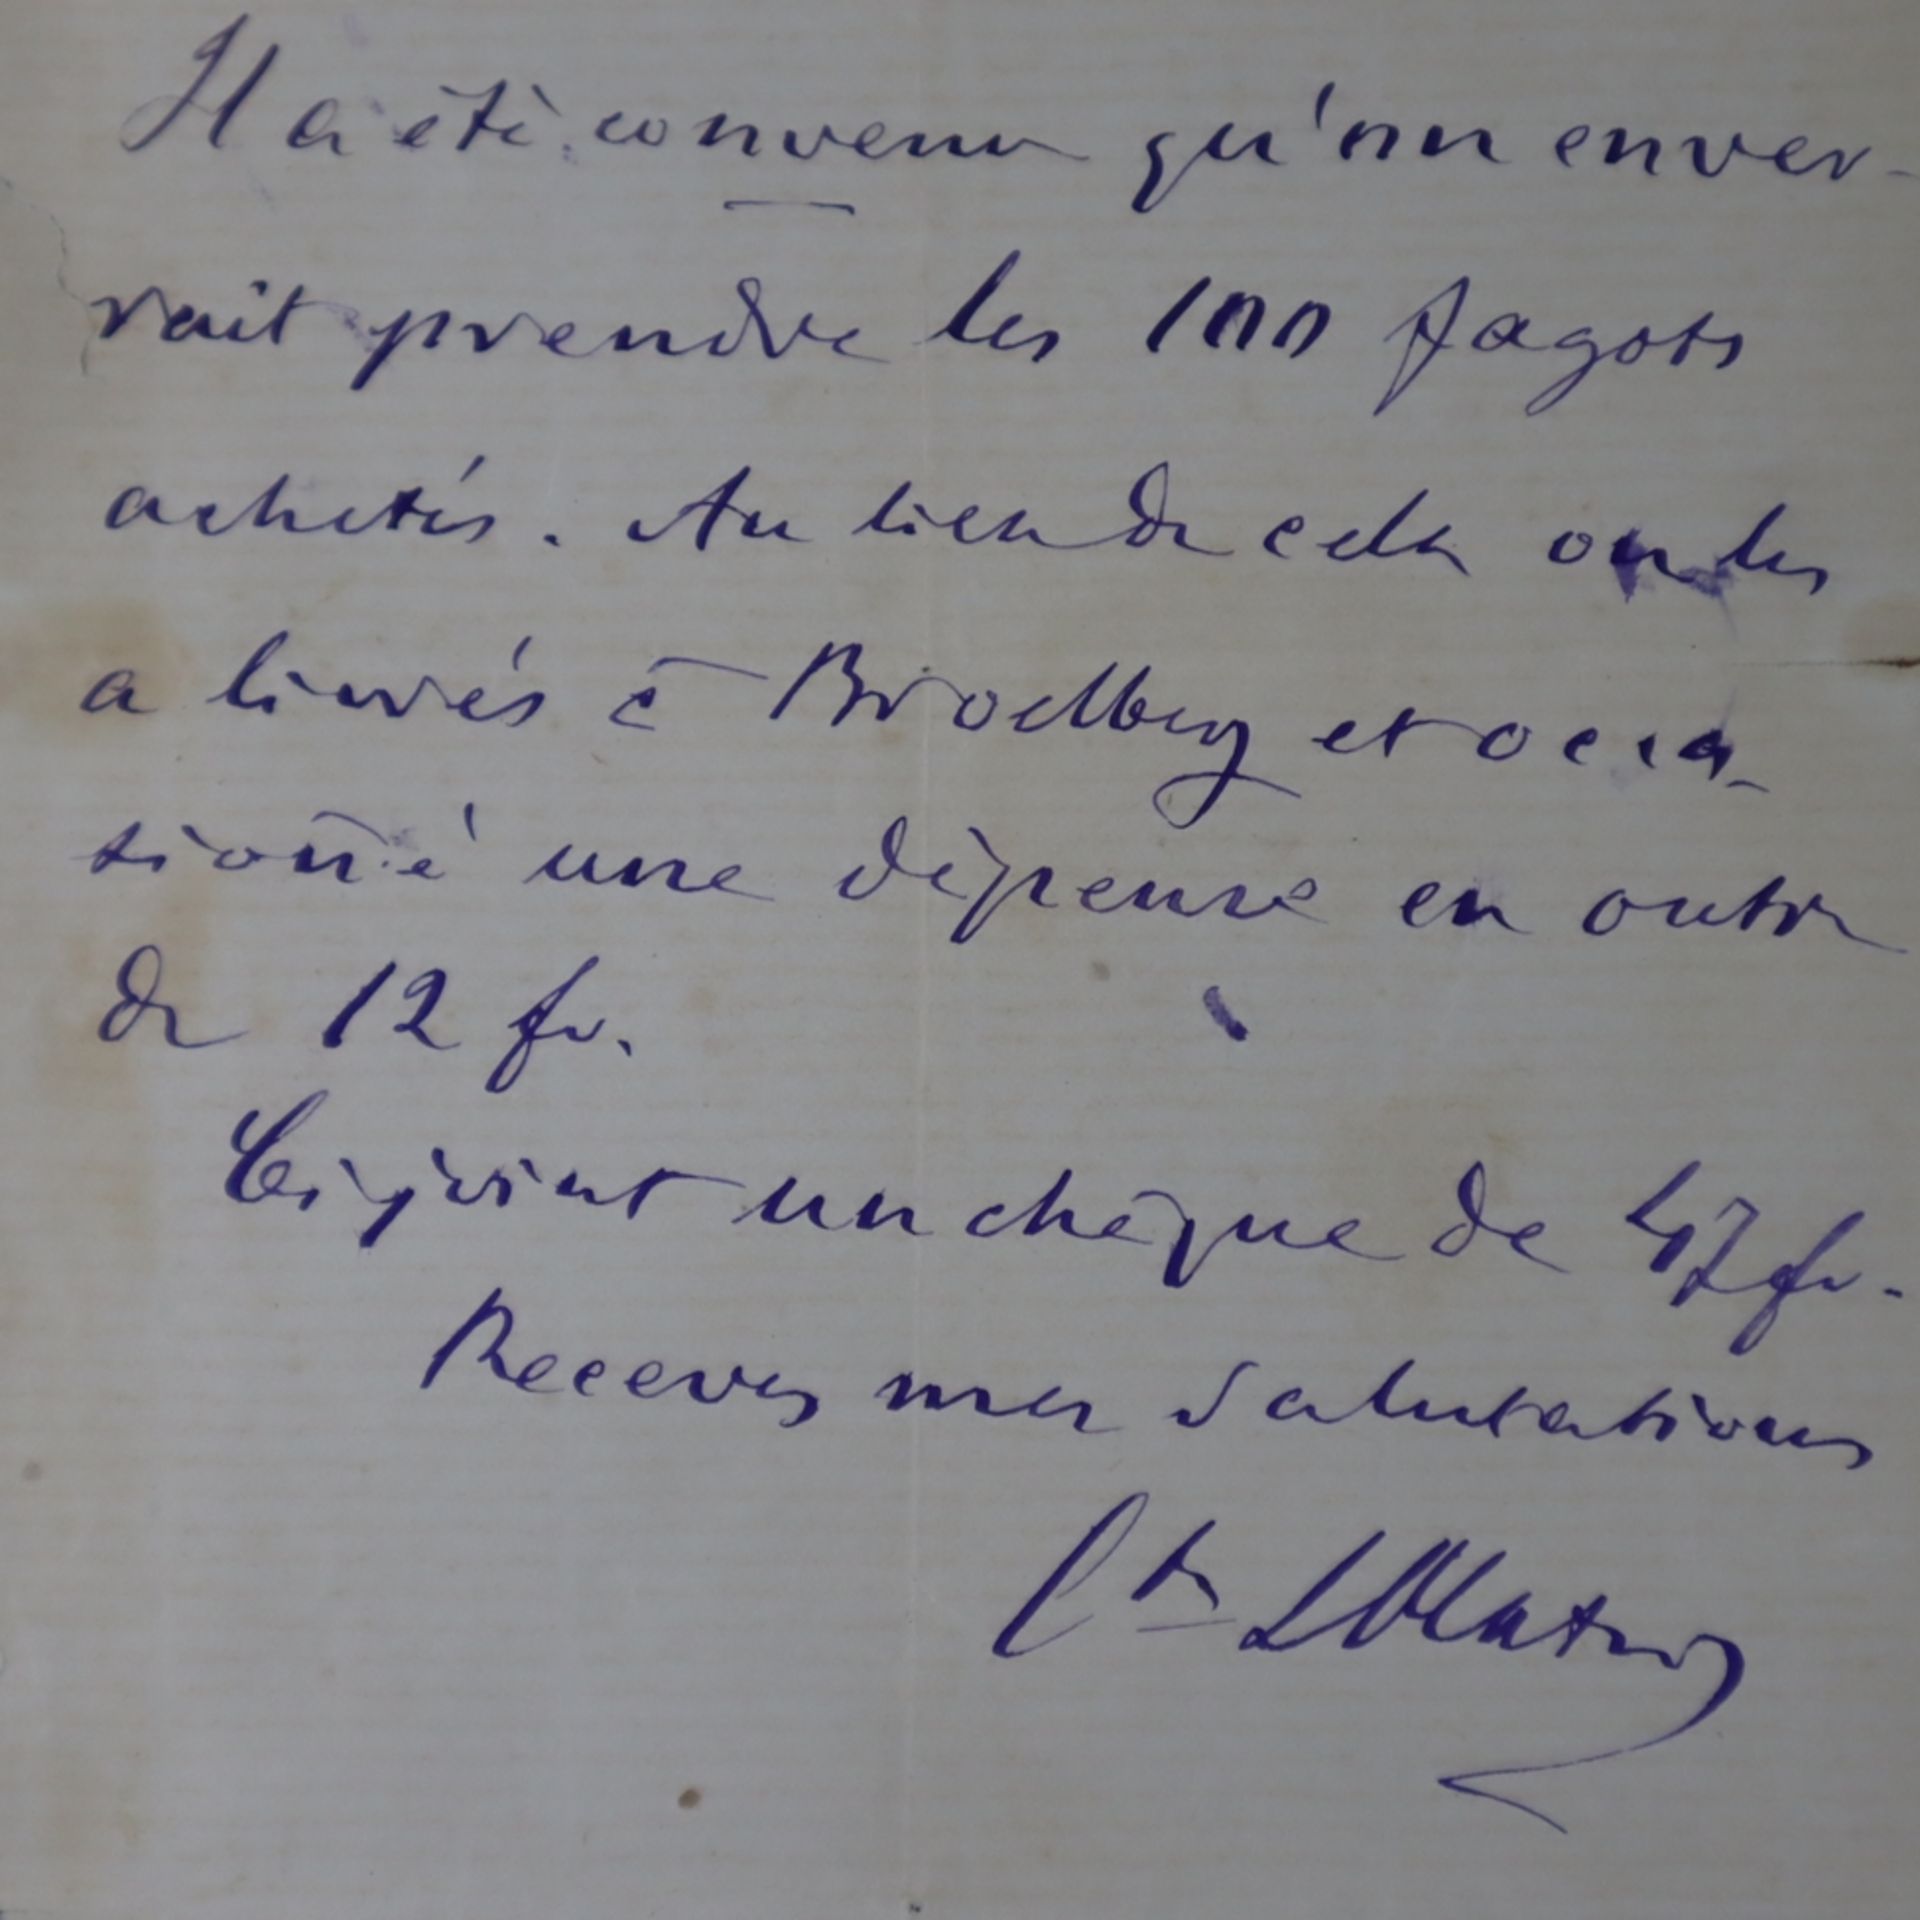 Il a été convenu qu'on enver-
rait prendre les 100 fagots
achetés. Au lieu de cela on les
a livrés à et occa-
sionné une dépense en outre
de 12 fr.
Ci joint un chèque de 47 fr.
Recevez mes salutations
Cte